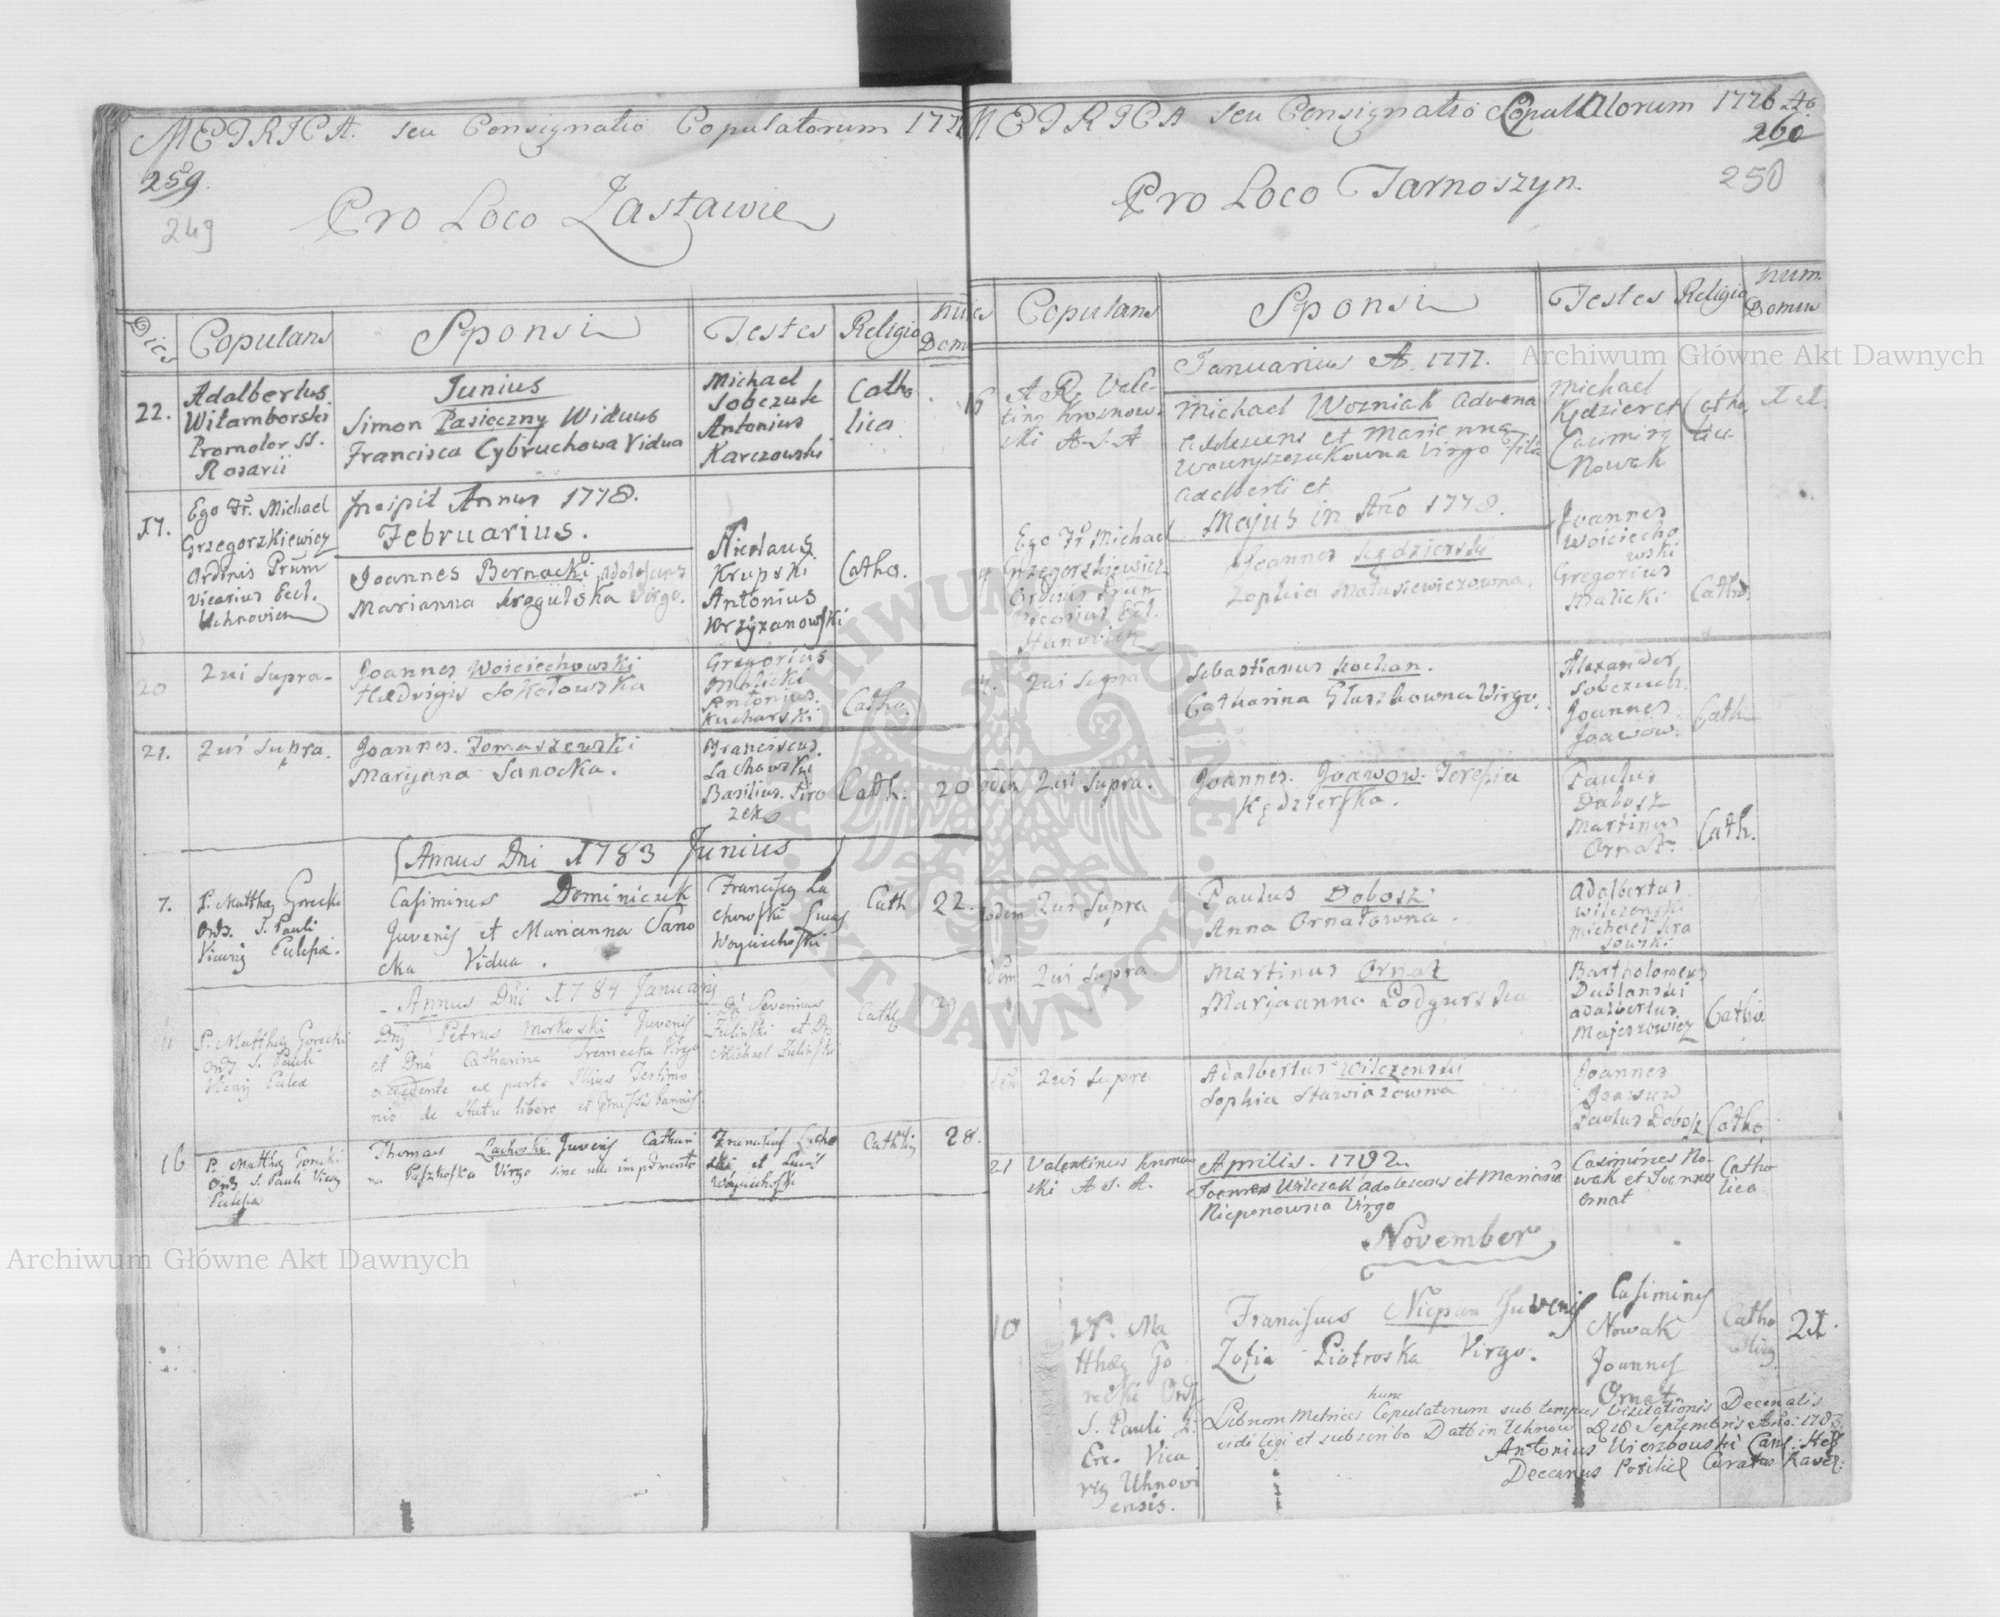 METRICA. seu Consignatio Copulatorum 177
259.
249
Pro Loco Zastawie
Dies
Copulans
Sponsi
Testes
Religio
Dom
22.
Adalbertus
Witamborski
Promotor SS.
Rosarii
Junius
Simon Pasieczny Widuus
Francisca Cybruchowa Vidua
Michael
Sobczuk
Antonius
Karczowski
Catho
lica
17.
Ego Fr. Michael
Grzegorzkiewicz
Ordinis Prum
Vicarius Eccl.
Uchnovien
Incipit Annus 1778.
Februarius.
Joannes Bernacki Adolescens
Marianna Krogulska Virgo.
Nicolaus
Krupski
Antonius
Wrzyzanowski
Catho.
20
Qui Supra
Joannes Woiciechowski
Hedvigis Sokołowska
Gregorius
Malicki
Antonius
Kucharski
Catho.
21.
Qui Supra.
Joannes. Tomaszewski
Maryana Sanocka.
Franciscus
Lachowski
Basilius Siro
zek
Cath.
20
Annus Dni 1783 Junius
7.
P. Matthæg Gorecki
Ords. S. Pauli
Vicarig Eclesiæ.
Casimirus Dominiczek
Juvenis et Marianna Sano
cka Vidua.
Franciscg La
chowski Lucas
Woyciechoski
Cath
22.
Annus Dni 1784 Januarij
P. Matthæg Gorecki
Ords S. Pauli
Dng Petrus Morkoski Juvenis
et Dna Catharina Virgo
accedente ex parte Illius Testimo
nio de Statu libero
Dn Severinus
Zulinski et Dn
Michael Zulinski
Cath
16
P. Matthæg Gorecki
Ords S. Pauli Vicarig
Eclesia
Thomas Lachoski Juvenis Cathari
na Paszkoska Virgo sine ullo impedimento
Lacho
ski et Lucas
Woyciechoski
Catholig
28.
METRICA seu Consignatio Copulatorum 1776
260
250
Pro Loco Tarnoszyn.
Copulans
Sponsi
Testes
Religio
Num.
Domus
16
A. R. Vale-
ting Krosnow-
ski A.S.A
Januarius A. 1777.
Michael Wozniak advena
adolescens et Marianna
Wawryszczukowna Virgo filia
Adalberti et
Michael
Kędzierski
Casimirg
Nowak
Catho
lica
Ego Fr Michael
Grzegorzkiewicz
Ordinis Prum
Vicarius Eccl.
Majus in Año 1778.
Joannes Kędzierski
Zophia Matusiewiczowna.
Joannes
Woiciecho
wski
Gregorius
Malicki
Catho.
Qui Supra
Sebastianus Kochan.
Catharina Głuszkowna Virgo.
Alexander
Sobczuck.
Joannes
Joawow.
Cath
Qui Supra.
Joannes. Joawow. Teresia
Kędzierska.
Paulus
Dobosz
Martinus
Ornat.
Cath.
Qui Supra
Paulus Dobosz.
Anna Ornatowna.
Adalbertus
Wilczenski
Michael Kra
sowski
Qui Supra
Martinus Ornat
Maryaanna Podgurska
Bartholomeus
Dublanski
Adalbertus
Majerzowicz
Catho.
Qui Supra
Adalbertus Wilczenski
Sophia Stawiarzowna
Joannes
Joawow
Paulus Dobosz
Catho.
21
Valentinus Krosnow
ski A.S.A.
Aprilis. 1782.
Joannes Wilczak adolescens et Marianna
Nieponowna Virgo
Casimirus No-
wak et Joannes
Ornat
Catho
lica
November
10
P. Ma
tthæg Go
recki Ords
S. Pauli P.
Ere. Vica
rig Uhnovi
ensis.
Franciscus Niepon Juvenis
Zofia Piotroska Virgo.
Casimirus
Nowak
Joannes
Ornat
Catho
licg
21.
hunc
Librum Metrices Copulatorum sub tempus Visitationis Decanalis
vidi legi et subscribo Datt in Uhnow D 18 Septembris Año: 178
Antonius Wierzbowski Can:
Decanus Curatus
Archiwum Główne Akt Dawnych
Archiwum Główne Akt Dawnych
ARCHIWUM GŁÓWNE · AKT DAWNYCH ·